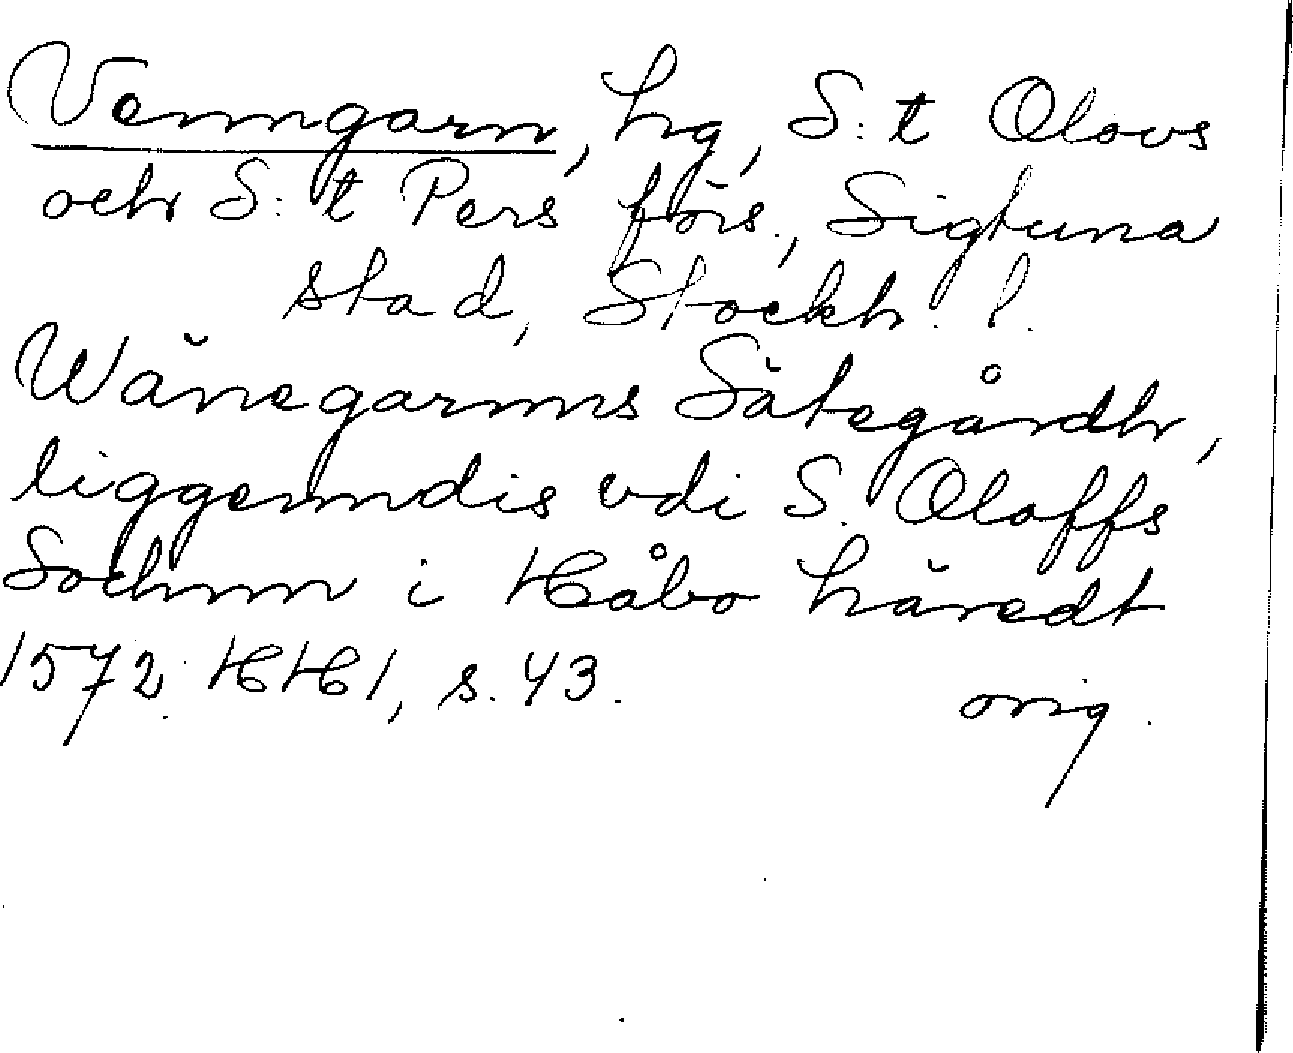 Venngarn, hg, S:t Olovs
och S:t Pers förs., Sigtuna
stad, Stockh. l.
Wänegarnns Sätegårdh,
liggenndis vdi S. Oloffs
Sochnn i Håbo häredt
1572. HH1, s. 43.
orig.